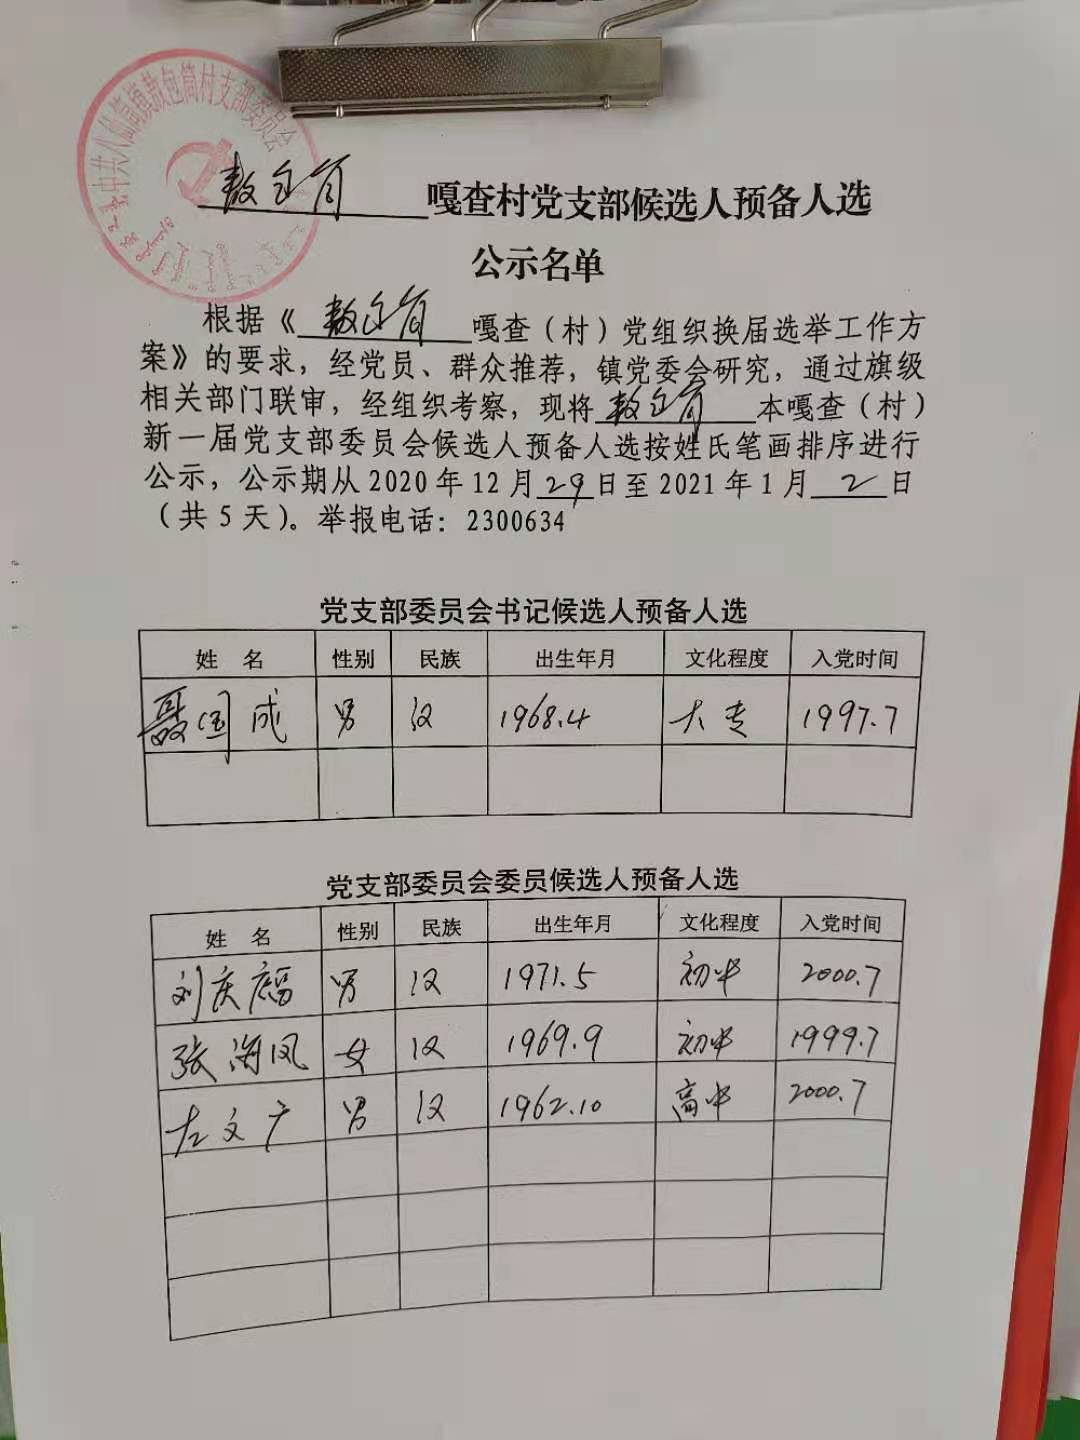 中共八仙筒镇敖包筒村支部委员会
敖包筒 嘎查村党支部候选人预备人选
公示名单
根据《敖包筒嘎查（村）党组织换届选举工作方
案》的要求，经党员、群众推荐，镇党委会研究，通过旗级
相关部门联审，经组织考察，现将敖包筒本嘎查（村）
新一届党支部委员会候选人预备人选按姓氏笔画排序进行
公示，公示期从2020年12月29日至2021年1月2日
（共5天）。举报电话：2300634
党支部委员会书记候选人预备人选
姓 名 性别 民族 出生年月 文化程度 入党时间
聂国成 男 汉 1968.4 大专 1997.7
党支部委员会委员候选人预备人选
姓 名 性别 民族 出生年月 文化程度 入党时间
刘庆福 男 汉 1971.5 初中 2000.7
张海凤 女 汉 1969.9 初中 1999.7
左文广 男 汉 1962.10 高中 2000.7